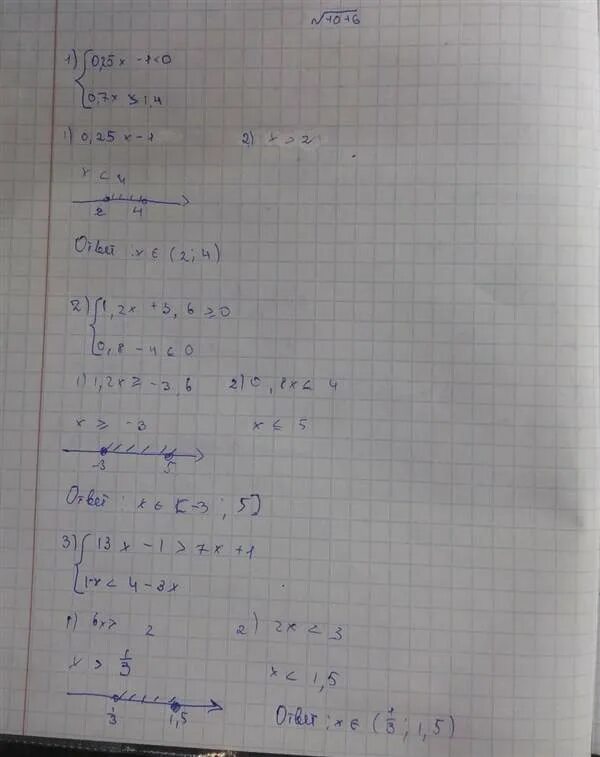 √10+6
1) { 0,25x - 1 < 0
0,7x > 1,4
1) 0,25x - 1 2) x > 2
x < 4
2 4
Ответ x ∈ (2; 4)
2) { 1,2x + 3,6 ≥ 0
0,8 - 4 ≤ 0
1) 1,2x ≥ -3,6 2) 0,8x ≤ 4
x ≥ -3 x ≤ 5
-3 5
Ответ: x ∈ [-3; 5]
3) { 13x - 1 > 7x + 1
1-x < 4 - 3x
1) 6x > 2 2) 2x < 3
x > 1/3 x < 1,5
1/3 1,5
Ответ: x ∈ (1/3; 1,5)